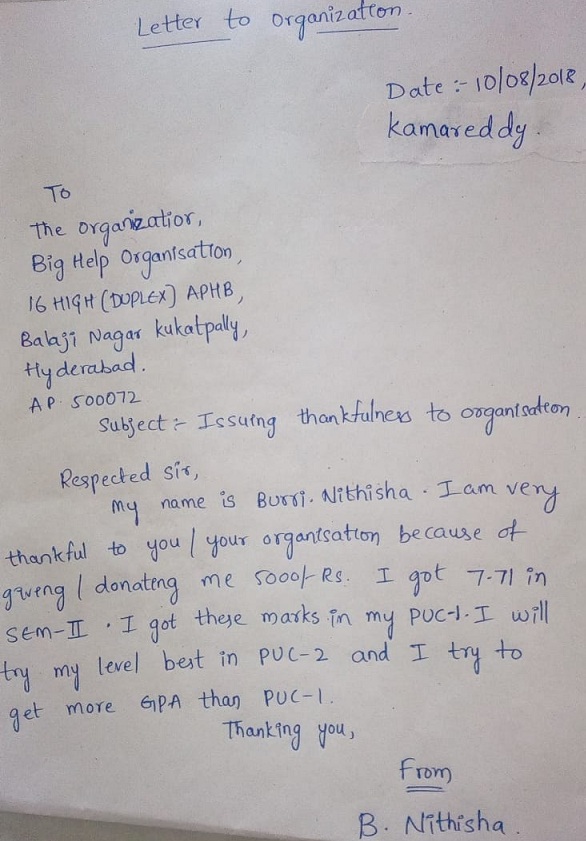 Letter to organization.
Date :- 10/08/2018,
kamareddy.
To
The organizatior,
Big Help Organisation,
16 HIGH (DUPLEX) APHB,
Balaji Nagar kukatpally,
Hyderabad.
AP. 500072
Subject :- Issuing thankfulness to organisation.
Respected Sir,
My name is Burri. Nithisha. I am very
thankful to you / your organisation because of
giveng / donating me 5000/- Rs. I got 7.71 in
SEM-II. I got these marks in my PUC-1. I will
try my level best in PUC-2 and I try to
get more GPA than PUC-1.
Thanking you,
From
B. Nithisha.